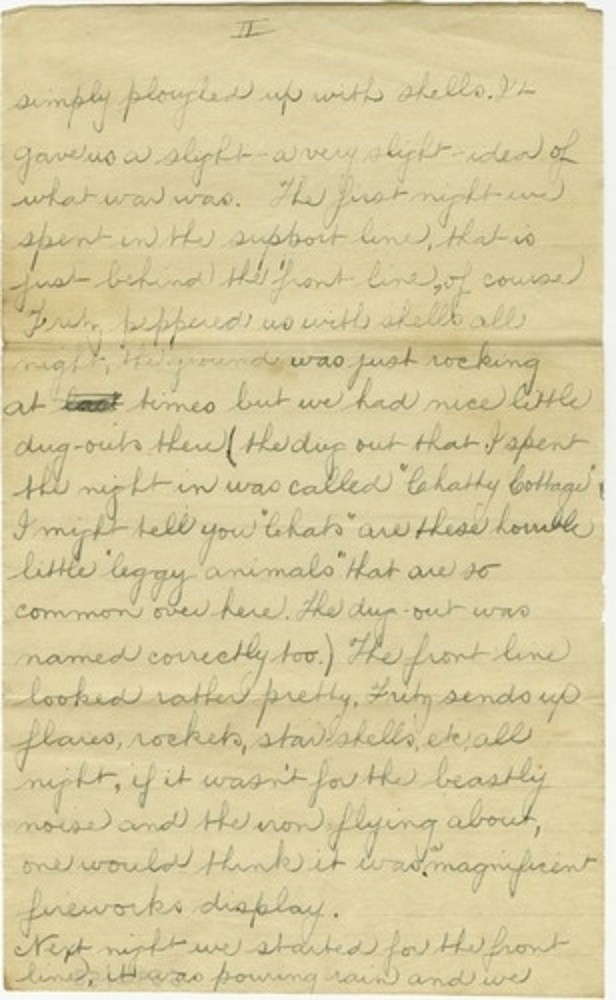 II
simply ploughed up with shells. It
gave us a slight - a very slight - idea of
what war was. The first night we
spent in the support line, that is
just behind the "front line", of course
Fritz peppered us with shells all
night, the ground was just rocking
at times but we had nice little
dug-outs there (the dug out that I spent
the night in was called "Chatty Cottage".
I might tell you "Chats" are these horrible
little "leggy animals" that are so
common over here. The dug-out was
named correctly too.) The front line
looked rather pretty, Fritz sends up
flares, rockets, star-shells, etc, all
night, if it wasn't for the beastly
noise and the iron flying about,
one would think it was "magnificent
fireworks display.
Next night we started for the front
line, it was pouring rain and we